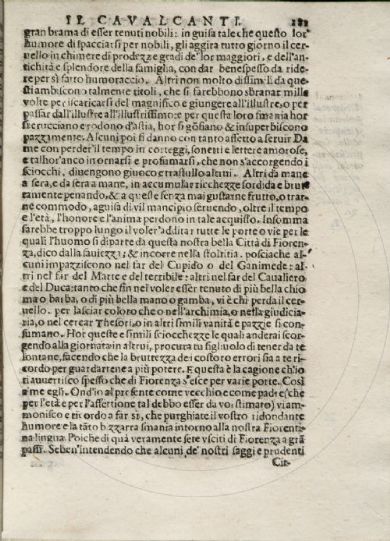 IL CAVALCANTI. 181
gran brama di esser tenuti nobili: in guisa tale che questo lor
humore di spacciarsi per nobili, gli aggira tutto giorno il cer-
uello in chimere di prodezze gradi de' lor maggiori, e dell'an-
tichità e splendore della famiglia, con dar benespesso da ride-
re per sì fatto humoraccio. Altri non molto dissimili da que-
sti ambiscono talmente titoli, che si farebbono sbranar mille
volte per iscaricarsi del magnifico e giungere all'illustre, o per
passar dall'illustre all'illustrissimo: e per questa loro smania hor
si crucciano e rodono d'astia, hor si gôfiano & insuperbiscono
pazzamente. Alcuni poi si danno con tanto affetto a seruir Da
me con perder'il tempo in corteggi, sonetti e lettere amorose,
e talhor'anco in ornarsi e profumarsi, che non s'accorgendo i
sciocchi, diuengono giuoco e trastullo altrui. Altri da mane
a sera, e da sera a mane, in accumular ricchezze sordida e bruta
tamente penando, & a queste senza mai gustarne frutto, o trar
ne commodo, aguisa di vil mancipio seruendo, oltre il tempo
e l'età, l'honore e l'anima perdono in tale acquisto. Insomma
sarebbe troppo lungo il voler'additar tutte le porte o vie per le
quali l'huomo si diparte da questa nostra bella Città di Fioren
za, dico dalla sauiezza; & incorre nella stoltitia. posciache al-
cuni impazziscono nel far del Cupido o del Ganimede: al-
tri nel far del Marte e del terribile: altri nel far del Caualiero
e del Duca: tanto che fin nel voler esser tenuto di più bella chio
ma o barba, o di più bella mano o gamba, vi è chi perda il cer-
uello. per lasciar coloro che o nell'archimia, o nella giudicia-
ria, o nel cercar Thesori, o in altri simili vanità e pazzie si con-
sumano. Hor queste e simili sciocchezze le quali anderai scor-
gendo alla giornata in altrui, procura tu figliuolo di tener da te
lontane, facendo che la bruttezza dei costoro errori sia a te ri-
cordo per guardartene a più potere. E questa è la cagione ch'io
ti auuertisco spesso che di Fiorenza s'esce per varie porte. Così
a me egli. Ond'io al presente come vecchio e come padre (che
per l'età e per l'affettione tal debbo esser da voi stimato) viam-
monisco e ricordo a far sì, che purghiate il vostro ridondante
humore e la tâto bizzarra smania intorno alla nostra Fiorenti-
na lingua. Poiche di quà veramente sete vsciti di Fiorenza a grâ
passi. Seben'intendendo che alcuni de' nostri saggi e prudenti
Cit-